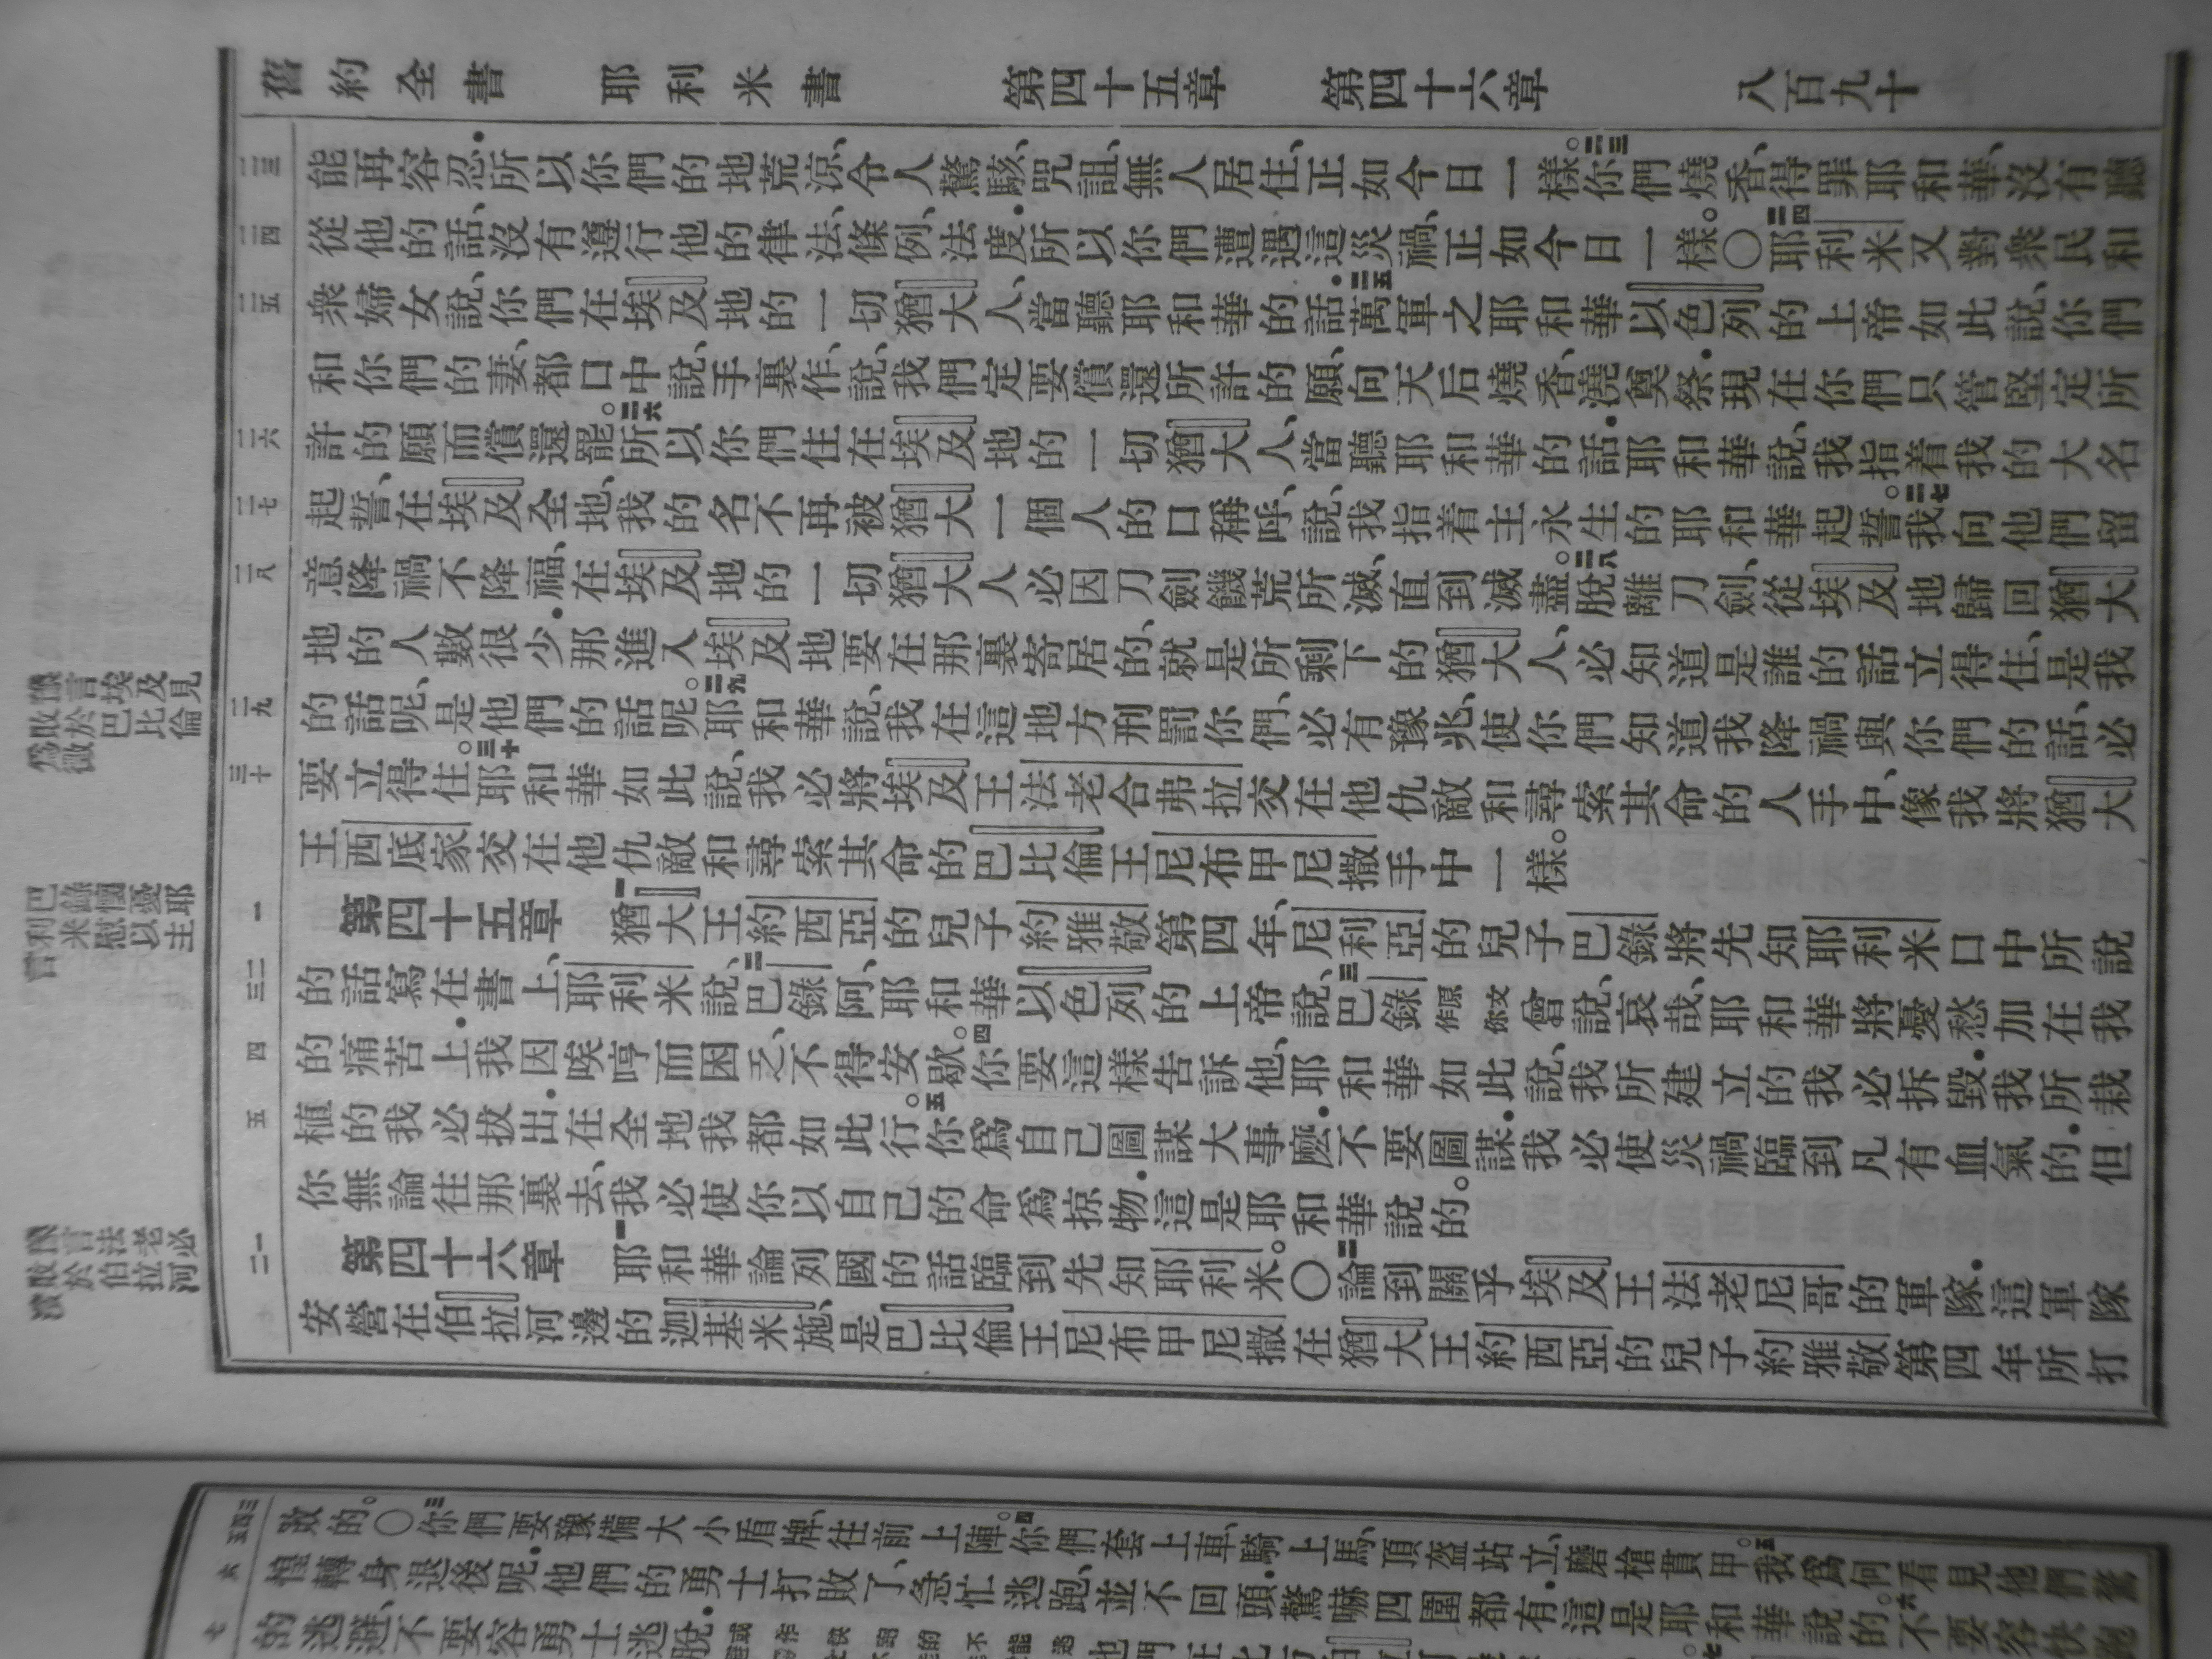 舊約全書 耶利米書 第四十五章 第四十六章 八百九十
能再容忍．所以你們的地荒涼、令人驚駭、咒詛、無人居住、正如今日一樣。二三你們燒香、得罪耶和華、沒有聽
從他的話、沒有遵行他的律法、條例、法度．所以你們遭遇這災禍、正如今日一樣。○二四耶利米又對衆民和
衆婦女說、你們在埃及地的一切猶大人、當聽耶和華的話．二五萬軍之耶和華以色列的上帝如此說、你們
和你們的妻、都口中說、手裏作、說、我們定要償還所許的願、向天后燒香、澆奠祭．現在你們只管堅定所
許的願而償還罷。二六所以你們住在埃及地的一切猶大人、當聽耶和華的話．耶和華說、我指着我的大名
起誓、在埃及全地、我的名不再被猶大一個人的口稱呼、說、我指着主永生的耶和華起誓。二七我向他們留
意降禍不降福、在埃及地的一切猶大人必因刀劍饑荒所滅、直到滅盡。二八脫離刀劍、從埃及地歸回猶大
地的人數很少．那進入埃及地要在那裏寄居的、就是所剩下的猶大人、必知道是誰的話立得住、是我
的話呢、是他們的話呢。二九耶和華說、我在這地方刑罰你們、必有豫兆、使你們知道我降禍與你們的話、必
要立得住。三十耶和華如此說、我必將埃及王法老合弗拉交在他仇敵和尋索其命的人手中、像我將猶大
王西底家交在他仇敵和尋索其命的巴比倫王尼布甲尼撒手中一樣。
第四十五章 一猶大王約西亞的兒子約雅敬第四年、尼利亞的兒子巴錄將先知耶利米口中所說
的話寫在書上、耶利米說、二巴錄阿、耶和華以色列的上帝說、三巴錄原文作你曾說、哀哉、耶和華將憂愁加在我
的痛苦上．我因唉哼而困乏、不得安歇。四你要這樣告訴他、耶和華如此說、我所建立的我必拆毀．我所栽
植的我必拔出．在全地我都如此行。五你爲自己圖謀大事麽．不要圖謀．我必使災禍臨到凡有血氣的．但
你無論往那裏去、我必使你以自己的命爲掠物．這是耶和華說的。
第四十六章 一耶和華論列國的話臨到先知耶利米。○二論到關乎埃及王法老尼哥的軍隊．這軍隊
安營在伯拉河邊的迦基米施、是巴比倫王尼布甲尼撒在猶大王約西亞的兒子約雅敬第四年所打
敗的。○三你們要豫備大小盾牌、往前上陣。四你們套上車、騎上馬、頂盔站立、磨槍貫甲。五我爲何看見他們驚
惶轉身退後呢．他們的勇士打敗了、急忙逃跑、並不回頭．驚嚇四圍都有．這是耶和華說的。六不要容快跑
的逃避、不要容勇士逃脫．